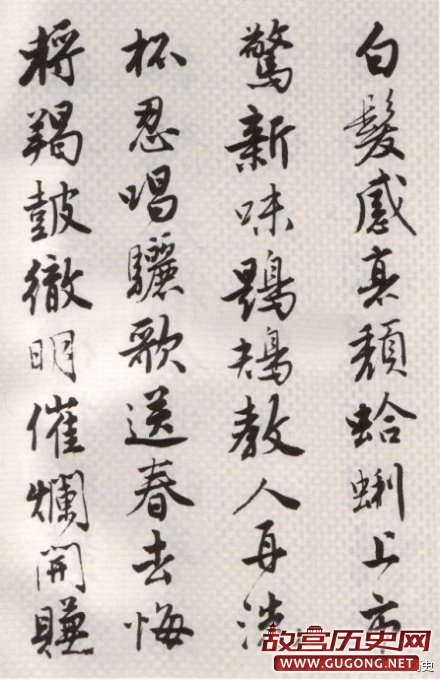 白髮感衰頹蛤蜊上市
驚新味鶗鴂教人再洗
杯忍唱驪歌送春去悔
將羯鼓徹明催爛開賺
故宫历史网
WWW.GUGONG.NET
史